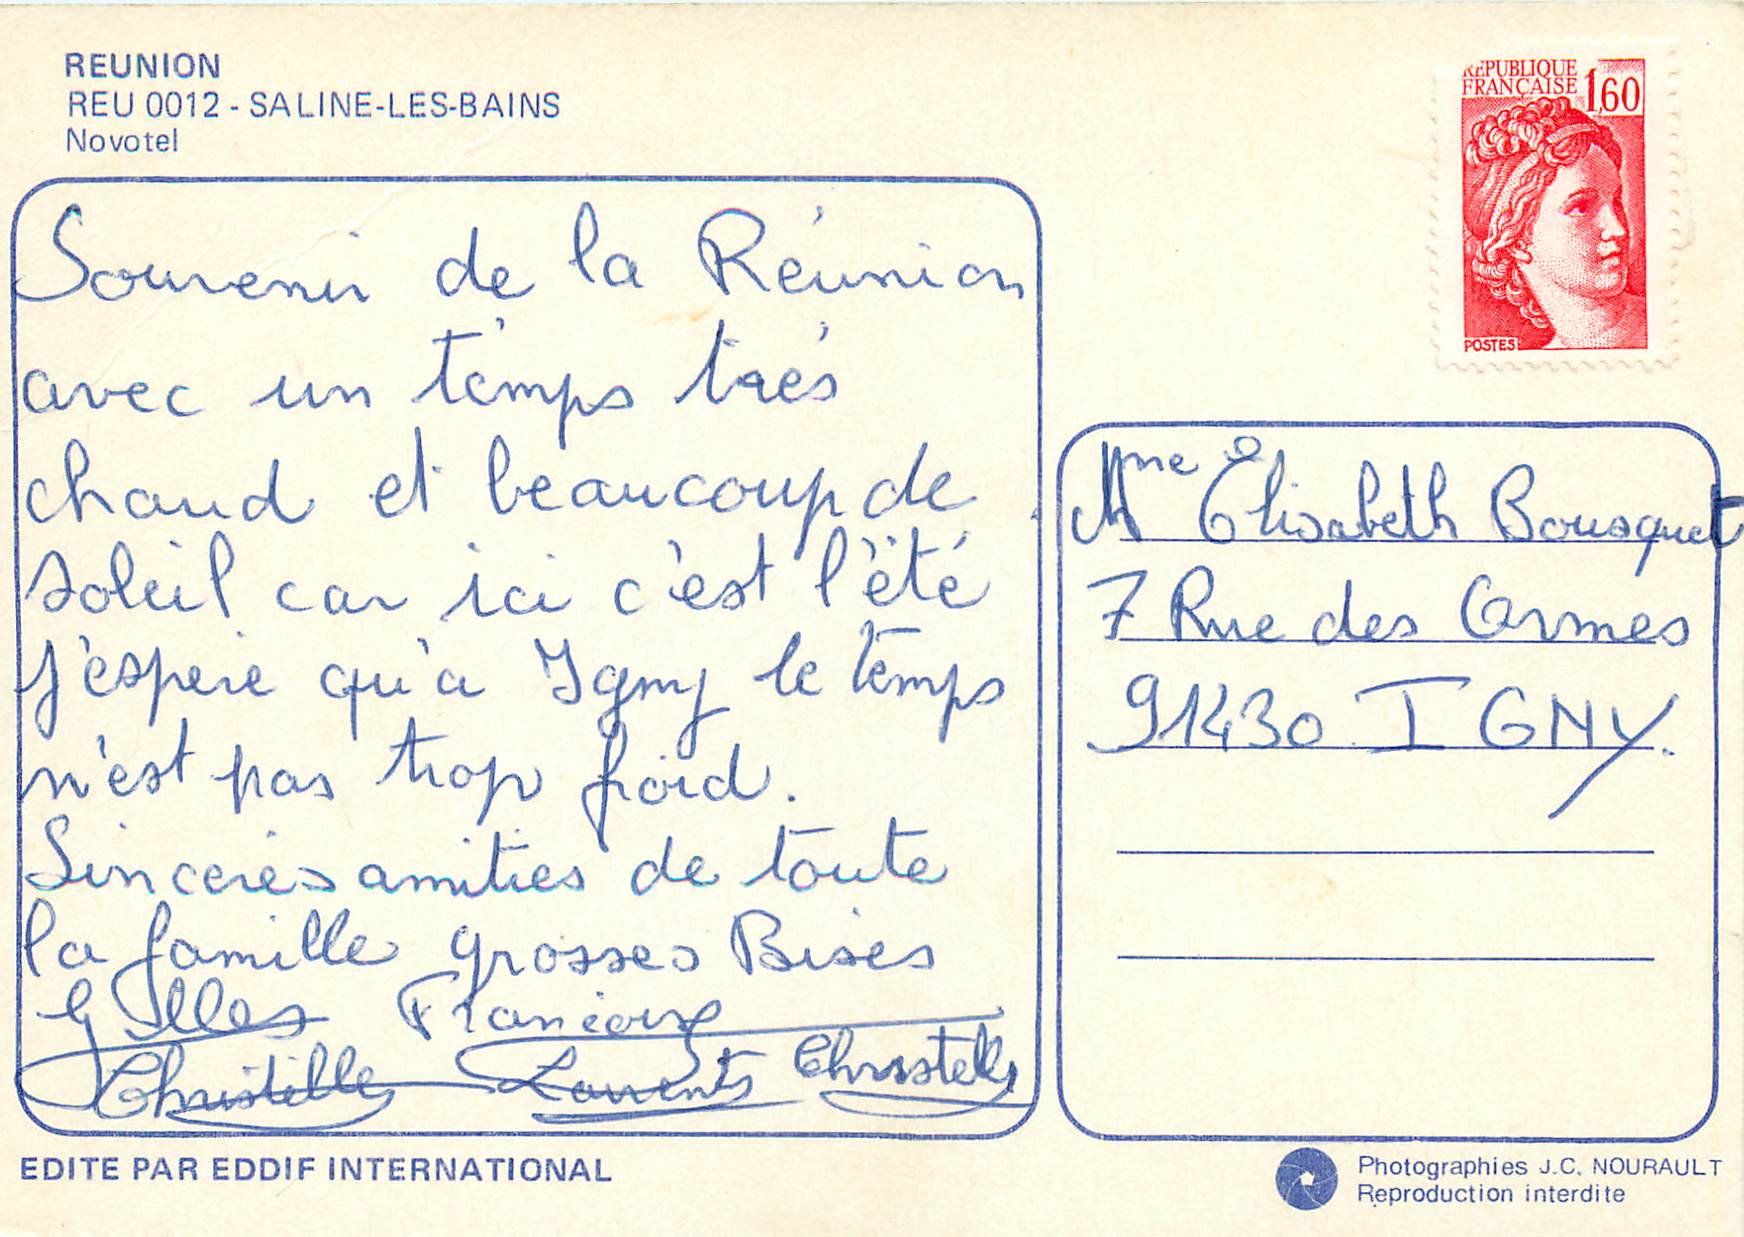 REUNION
REU 0012 - SALINE-LES-BAINS
Novotel
REPUBLIQUE
FRANÇAISE 1,60
POSTES
Souvenir de la Réunion
avec un témps trés
chaud et beaucoup de
soleil car ici c'est l'été
J'espère qu'a Igny le temps
n'est pas trop froid.
Sinceres amities de toute
la famille grosses Bises
Gilles Françoise
Christelle Laurents Christelle
Mme Elisabeth Bousquet
7 Rue des Ormes
91430 IGNY.
EDITE PAR EDDIF INTERNATIONAL
Photographies J.C. NOURAULT
Reproduction interdite